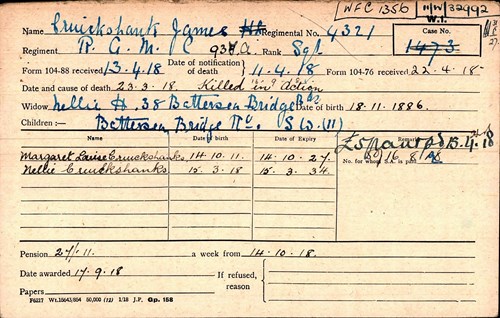 WFC 1350 11/W/32992
W.1.
Name Cruickshank James Regimental No. 4321 Case No.
Regiment R. A. M. C Rank Sgt 1473
Form 104-88 received 13.4.18 Date of notification of death 11.4.18 Form 104-76 received 22.4.18
Date and cause of death 23.3.18 Killed in action
Widow Nellie H. 38 Battersea Bridge Bdgs Date of birth 18.11.1886.
Children:— Battersea Bridge Rd. S.W. (11)
Name Date of birth Date of Expiry Remarks
No. for whom S.A. is paid
Margaret Louise Cruickshanks 14.10.11. 14.10.27.
Nellie Cruickshanks 15.3.18 15.3.34.
Pension 27/11. a week from 14.10.18.
Date awarded 17.9.18 If refused, reason
Papers
F6217 Wt.16643/864 50,000 (12) 1/18 J.P. Gp. 158